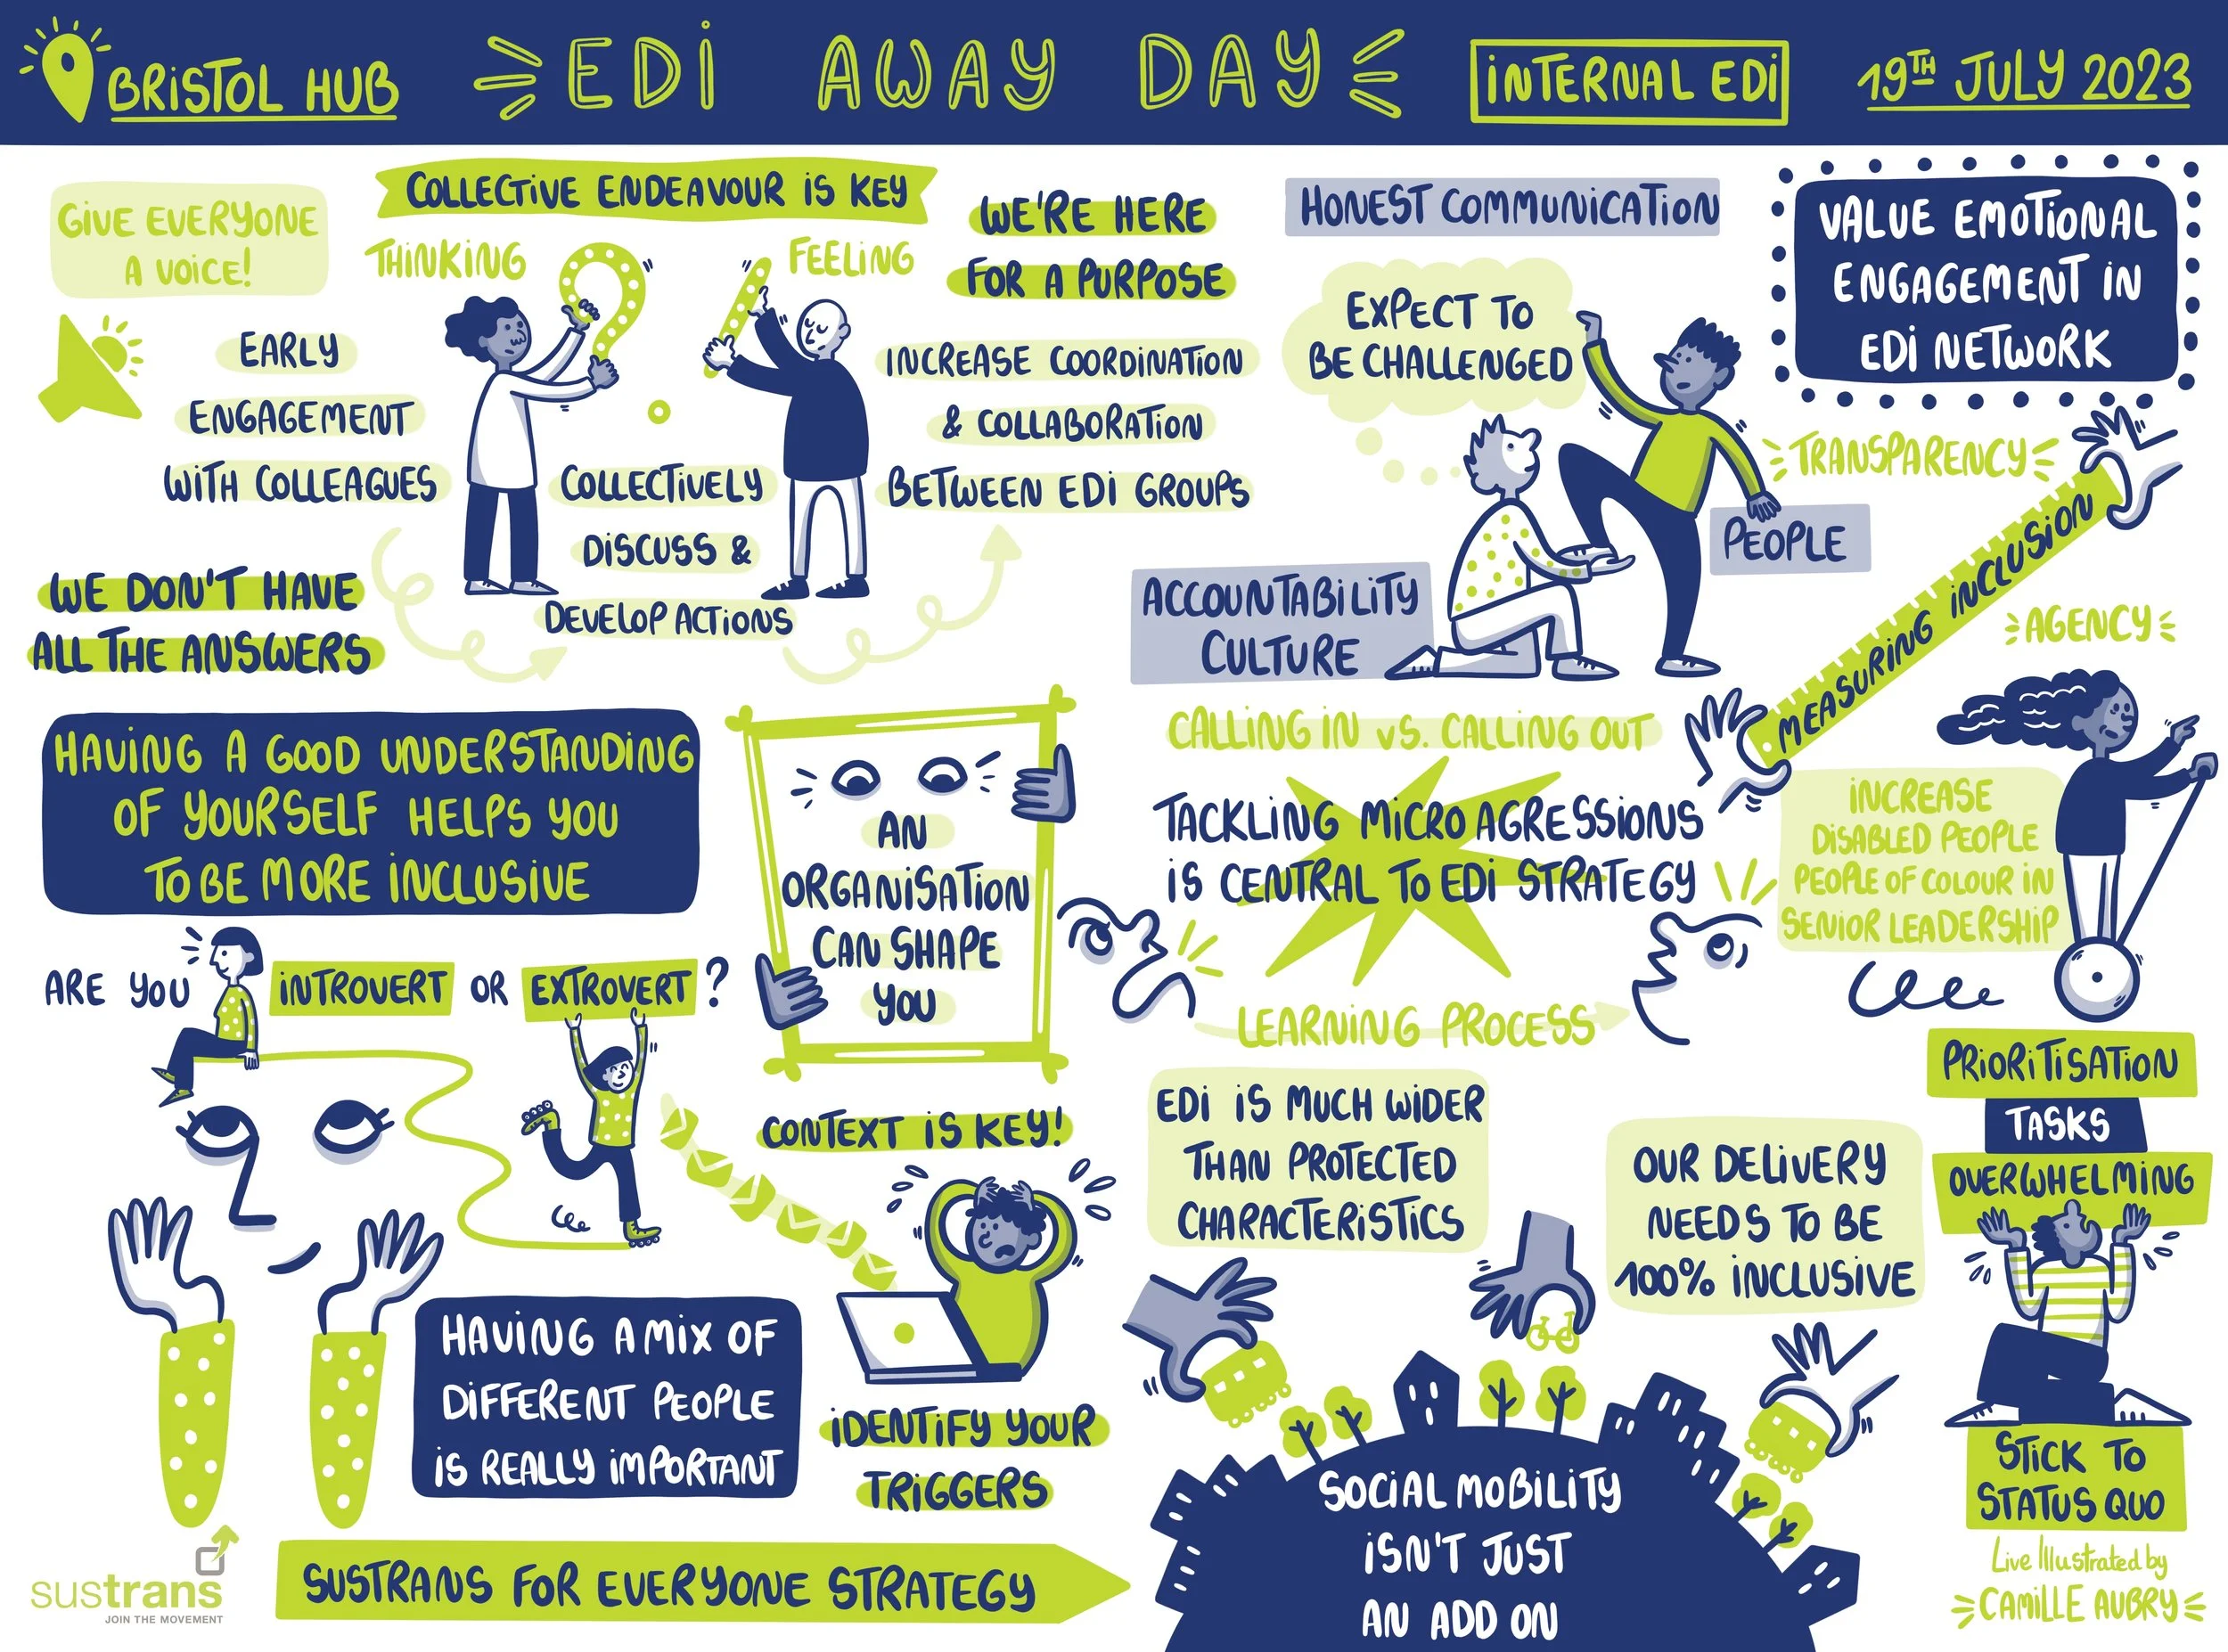 BRISTOL HUB
EDI AWAY DAY
INTERNAL EDI
19TH JULY 2023
GIVE EVERYONE
A VOICE!
COLLECTIVE ENDEAVOUR IS KEY
THINKING
FEELING
EARLY
ENGAGEMENT
WITH COLLEAGUES
WE DON'T HAVE
ALL THE ANSWERS
COLLECTIVELY
DISCUSS &
DEVELOP ACTIONS
WE'RE HERE
FOR A PURPOSE
INCREASE COORDINATION
& COLLABORATION
BETWEEN EDI GROUPS
HONEST COMMUNICATION
EXPECT TO
BE CHALLENGED
ACCOUNTABILITY
CULTURE
PEOPLE
VALUE EMOTIONAL
ENGAGEMENT IN
EDI NETWORK
TRANSPARENCY
MEASURING INCLUSION
AGENCY
HAVING A GOOD UNDERSTANDING
OF YOURSELF HELPS YOU
TO BE MORE INCLUSIVE
ARE YOU INTROVERT OR EXTROVERT?
AN
ORGANISATION
CAN SHAPE
YOU
CALLING IN VS. CALLING OUT
TACKLING MICRO AGRESSIONS
IS CENTRAL TO EDI STRATEGY
LEARNING PROCESS
INCREASE
DISABLED PEOPLE
PEOPLE OF COLOUR IN
SENIOR LEADERSHIP
CONTEXT IS KEY!
HAVING A MIX OF
DIFFERENT PEOPLE
IS REALLY IMPORTANT
IDENTIFY YOUR
TRIGGERS
EDI IS MUCH WIDER
THAN PROTECTED
CHARACTERISTICS
OUR DELIVERY
NEEDS TO BE
100% INCLUSIVE
PRIORITISATION
TASKS
OVERWHELMING
STICK TO
STATUS QUO
SOCIAL MOBILITY
ISN'T JUST
AN ADD ON
sustrans
JOIN THE MOVEMENT
SUSTRANS FOR EVERYONE STRATEGY
Live Illustrated by
CAMILLE AUBRY